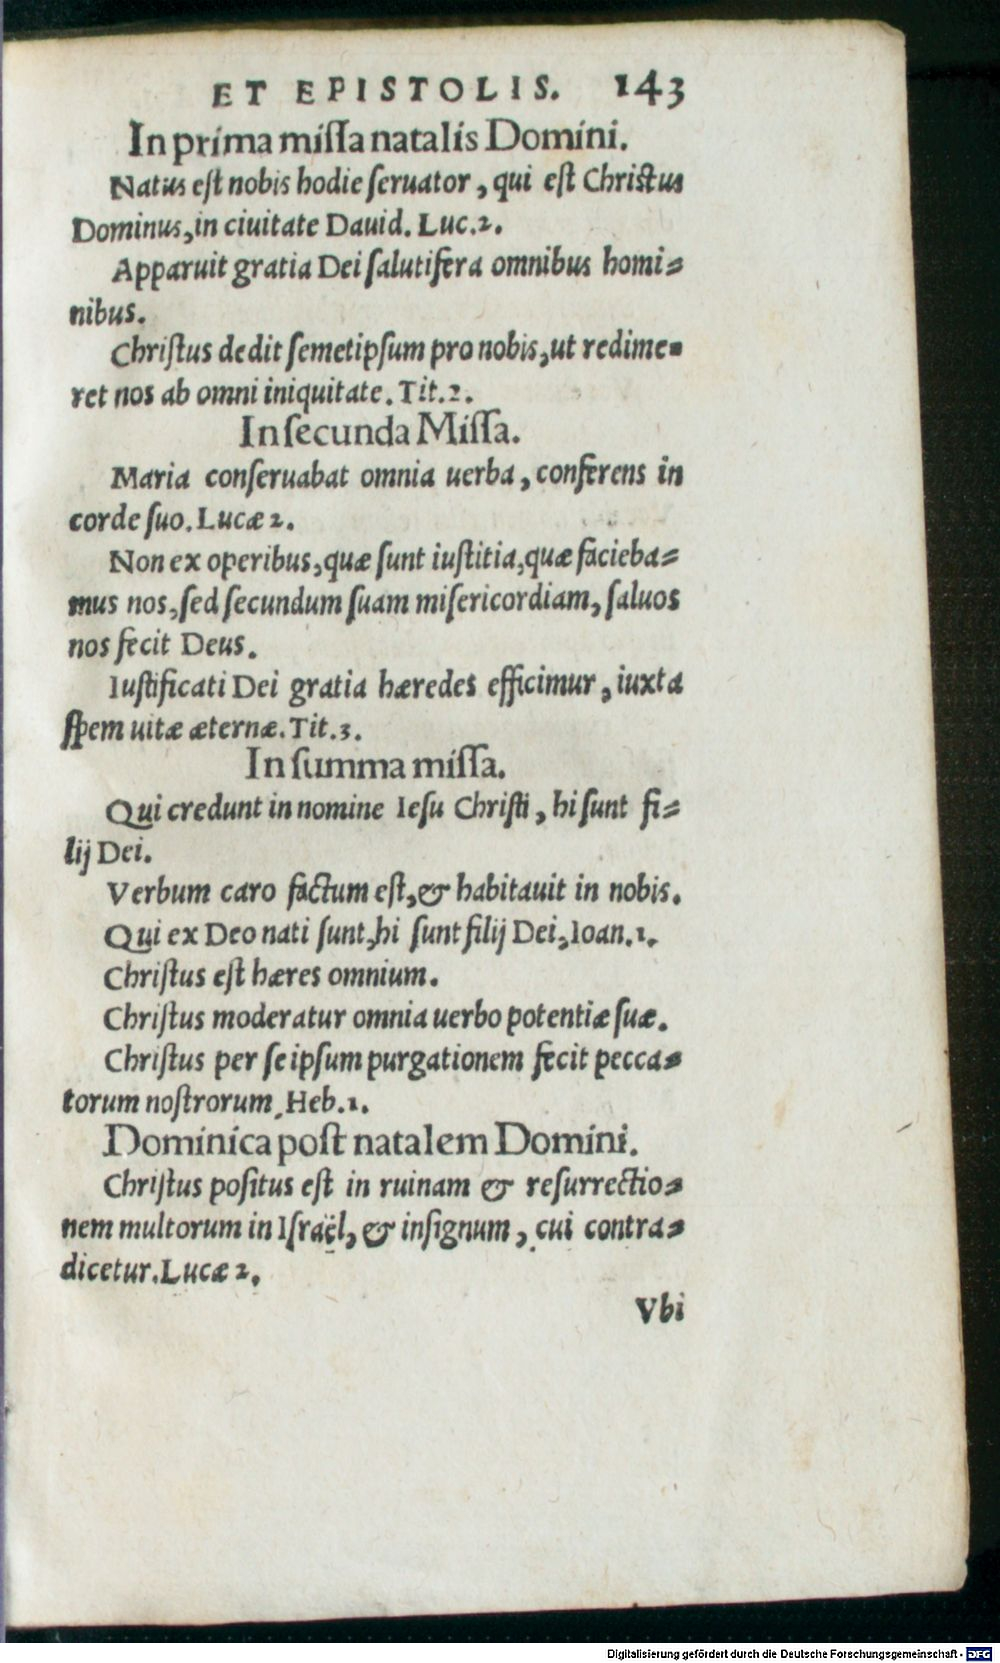 ET EPISTOLIS. 143
In prima missa natalis Domini.
Natus est nobis hodie seruator, qui est Christus
Dominus, in ciuitate Dauid. Luc. 2.
Apparuit gratia Dei salutifera omnibus homi=
nibus.
Christus dedit semetipsum pro nobis, ut redime=
ret nos ab omni iniquitate. Tit. 2.
In secunda Missa.
Maria conseruabat omnia uerba, conferens in
corde suo. Lucæ 2.
Non ex operibus, quæ sunt iustitia, quæ facieba=
mus nos, sed secundum suam misericordiam, saluos
nos fecit Deus.
Iustificati Dei gratia hæredes efficimur, iuxta
spem uitæ æternæ. Tit. 3.
In summa missa.
Qui credunt in nomine Iesu Christi, hi sunt fi=
lij Dei.
Verbum caro factum est, & habitauit in nobis.
Qui ex Deo nati sunt, hi sunt filij Dei, Ioan. 1.
Christus est hæres omnium.
Christus moderatur omnia uerbo potentiæ suæ.
Christus per se ipsum purgationem fecit pecca=
torum nostrorum, Heb. 1.
Dominica post natalem Domini.
Christus positus est in ruinam & resurrectio=
nem multorum in Israël, & in signum, cui contra=
dicetur. Lucæ 2.
Vbi
Digitalisierung gefördert durch die Deutsche Forschungsgemeinschaft - DFG